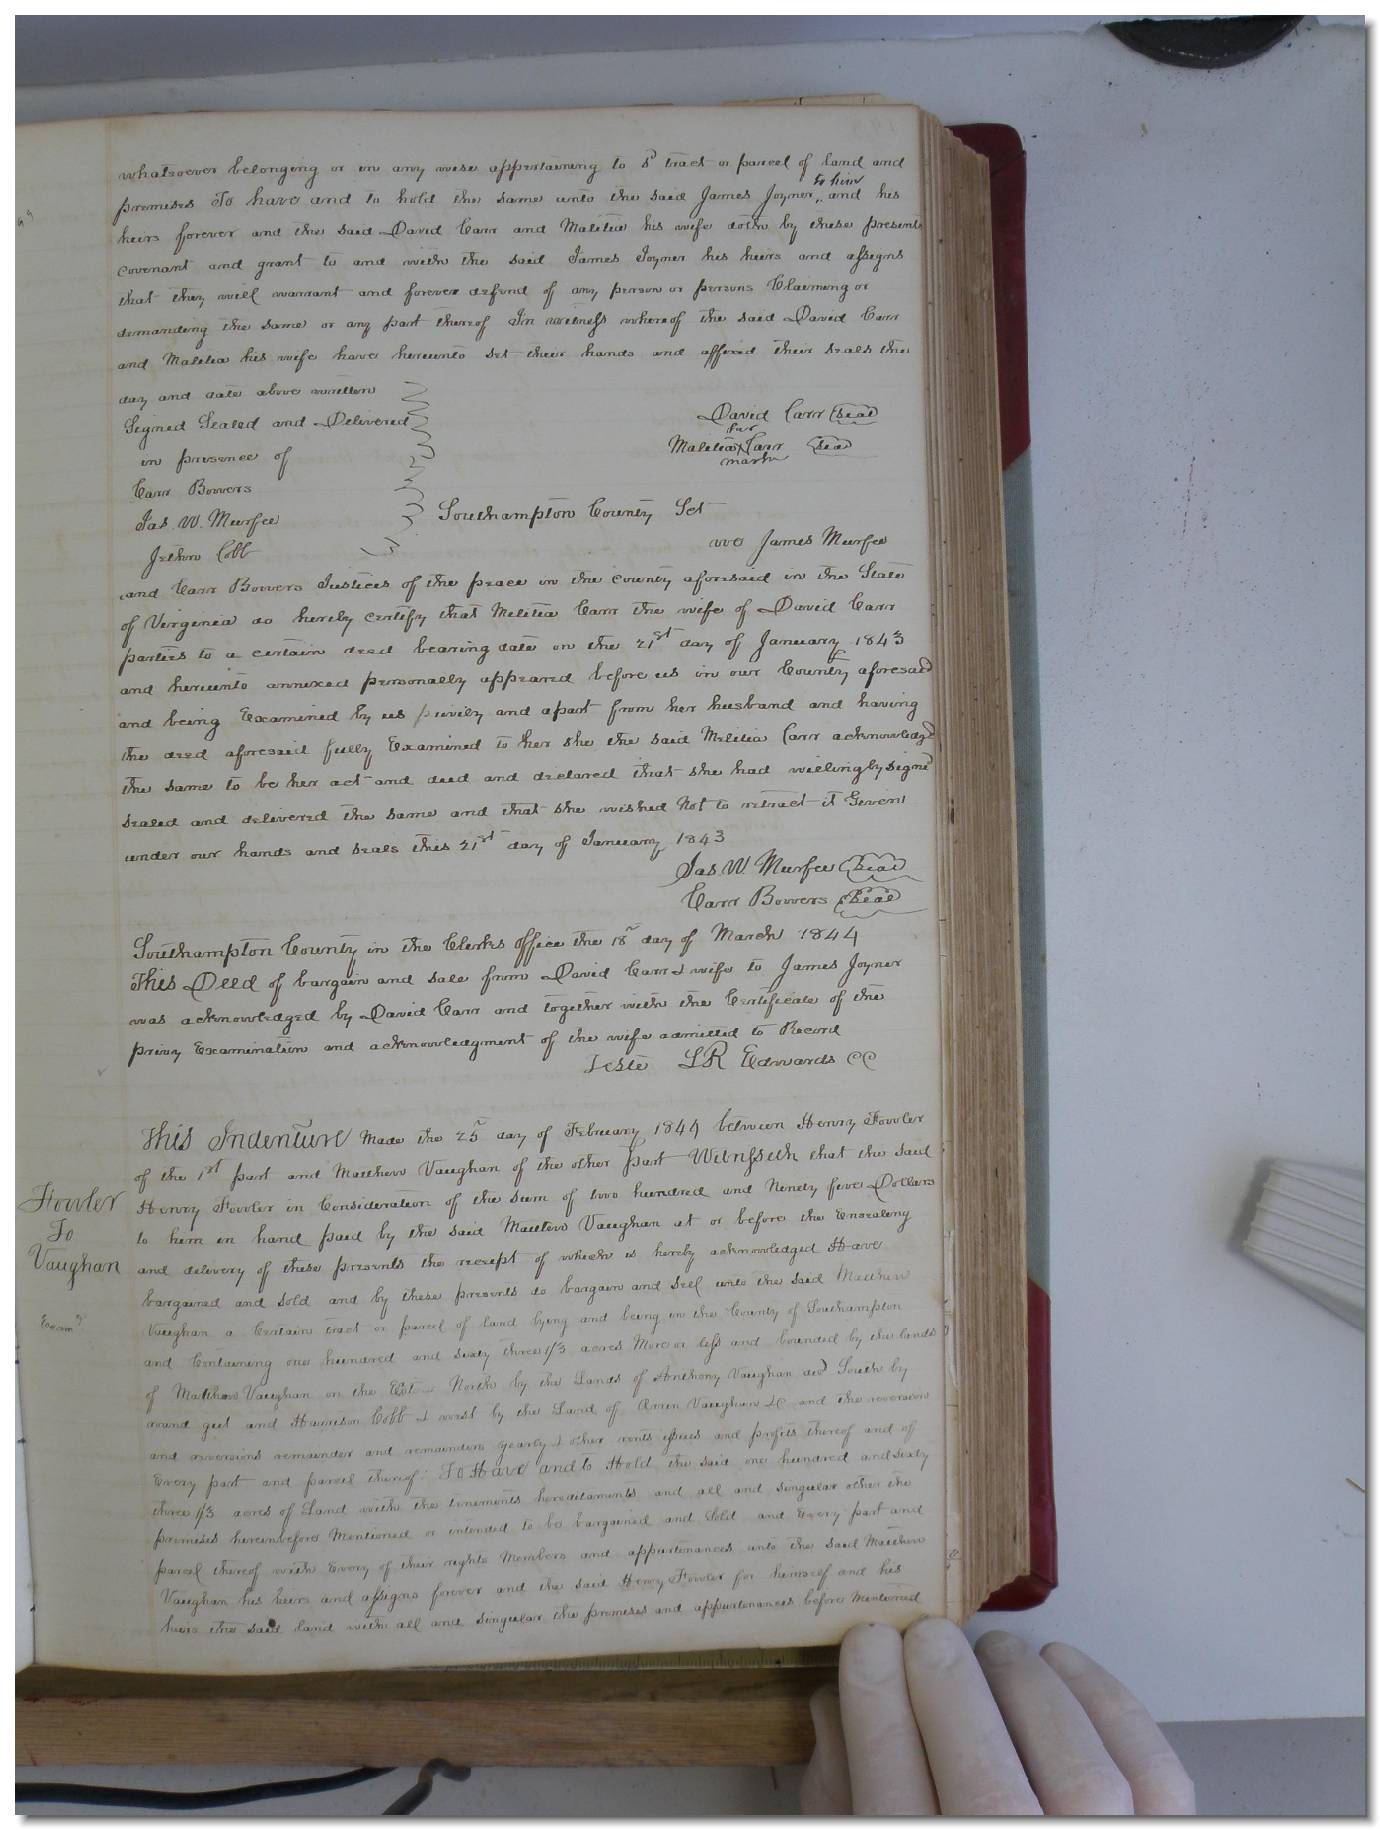 whatsoever belonging or in any wise appertaining to sd tract or parcel of land and
premises To have and to hold the same unto the said James Joyner, to him and his
heirs forever and the said David Carr and Malitia his wife doth by these presents
covenant and grant to and with the said James Joyner his heirs and assigns
that they will warrant and forever defend of any person or persons Claiming or
demanding the same or any part thereof In witness whereof the said David Carr
and Malitia his wife have hereunto set their hands and affixed their seals the
day and date above written
Signed Sealed and Delivered
in presence of
Carr Bowers
Jas. W. Murfee
Jethro Cobb
David Carr Seal
her
Malitia X Carr Seal
mark
Southampton County Sct
we James Murfee
and Carr Bowers Justices of the peace in the county aforesaid in the State
of Virginia do hereby certify that Melitia Carr the wife of David Carr
parties to a certain deed bearing date on the 21st day of January 1843
and hereunto annexed personally appeared before us in our County aforesaid
and being Examined by us privily and apart from her husband and having
the deed aforesaid fully Examined to her she the said Melitia Carr acknowledgd
the same to be her act and deed and declared that she had willingly signed
sealed and delivered the same and that she wished Not to retract it Given
under our hands and seals this 21st day of January 1843
Jas. W. Murfee Seal
Carr Bowers Seal
Southampton County in the Clerks office the 18 day of March 1844
This Deed of bargain and sale from David Carr & wife to James Joyner
was acknowledged by David Carr and together with the Certificate of the
privy Examination and acknowledgment of the wife admitted to Record
Teste LR Edwards CC
This Indenture Made the 25 day of February 1844 between Henry Fowler
of the 1st part and Matthew Vaughan of the other part Witnesseth that the said
Henry Fowler in Consideration of the sum of two hundred and Ninety five Dollars
Fowler
To
Vaughan
Exam d
to him in hand paid by the said Matthew Vaughan at or before the Ensealing
and delivery of these presents the receipt of which is hereby acknowledged Have
bargained and sold and by these presents do bargain and sell unto the said Matthew
Vaughan a Certain tract or parcel of land lying and being in the County of Southampton
and Containing one hundred and sixty three 1/3 acres More or less and bounded by the lands
of Matthew Vaughan on the Est North by the Lands of Anthony Vaughan decd South by
round gut and Harrison Cobb & west by the Land of Vaughan &c and the reversion
and reversions remainder and remainders yearly & other rents issues and profits thereof and of
Every part and parcel thereof. To Have and to Hold the said one hundred and sixty
three 1/3 acres of Land with the tenements hereditaments and all and singular other the
premises hereinbefore Mentioned or intended to be bargained and Sold and Every part and
parcel thereof with Every of their rights Members and appurtenances unto the said Matthew
Vaughan his heirs and assigns forever and the said Henry Fowler for himself and his
heirs the said land with all and singular the premises and appurtenances before Mentioned